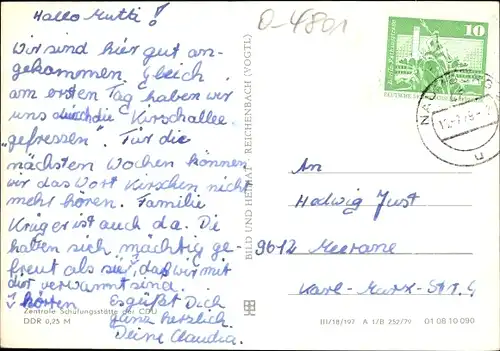 Hallo Mutti!
Wir sind hier gut an-
gekommen. Gleich
am ersten Tag haben wir
uns durch die Kirschallee
"gefressen". Für die
nächsten Wochen können
wir das Wort Kirschen nicht
mehr hören. Familie
Krüger ist auch da. Die
haben sich mächtig ge-
freut als sie, daß wir mit
dir verwannt sind.
hörten
Es grüßt Dich
ganz herzlich
Deine Claudia.
Zentrale Schulungsstätte der CDU
DDR 0,25 M
BILD UND HEIMAT REICHENBACH (VOGTL)
O-4801
10
An
Hedwig Just
9612 Meerane
Karl-Marx-Str. 4
III/18/197 A 1/B 252/79 01 08 10 090